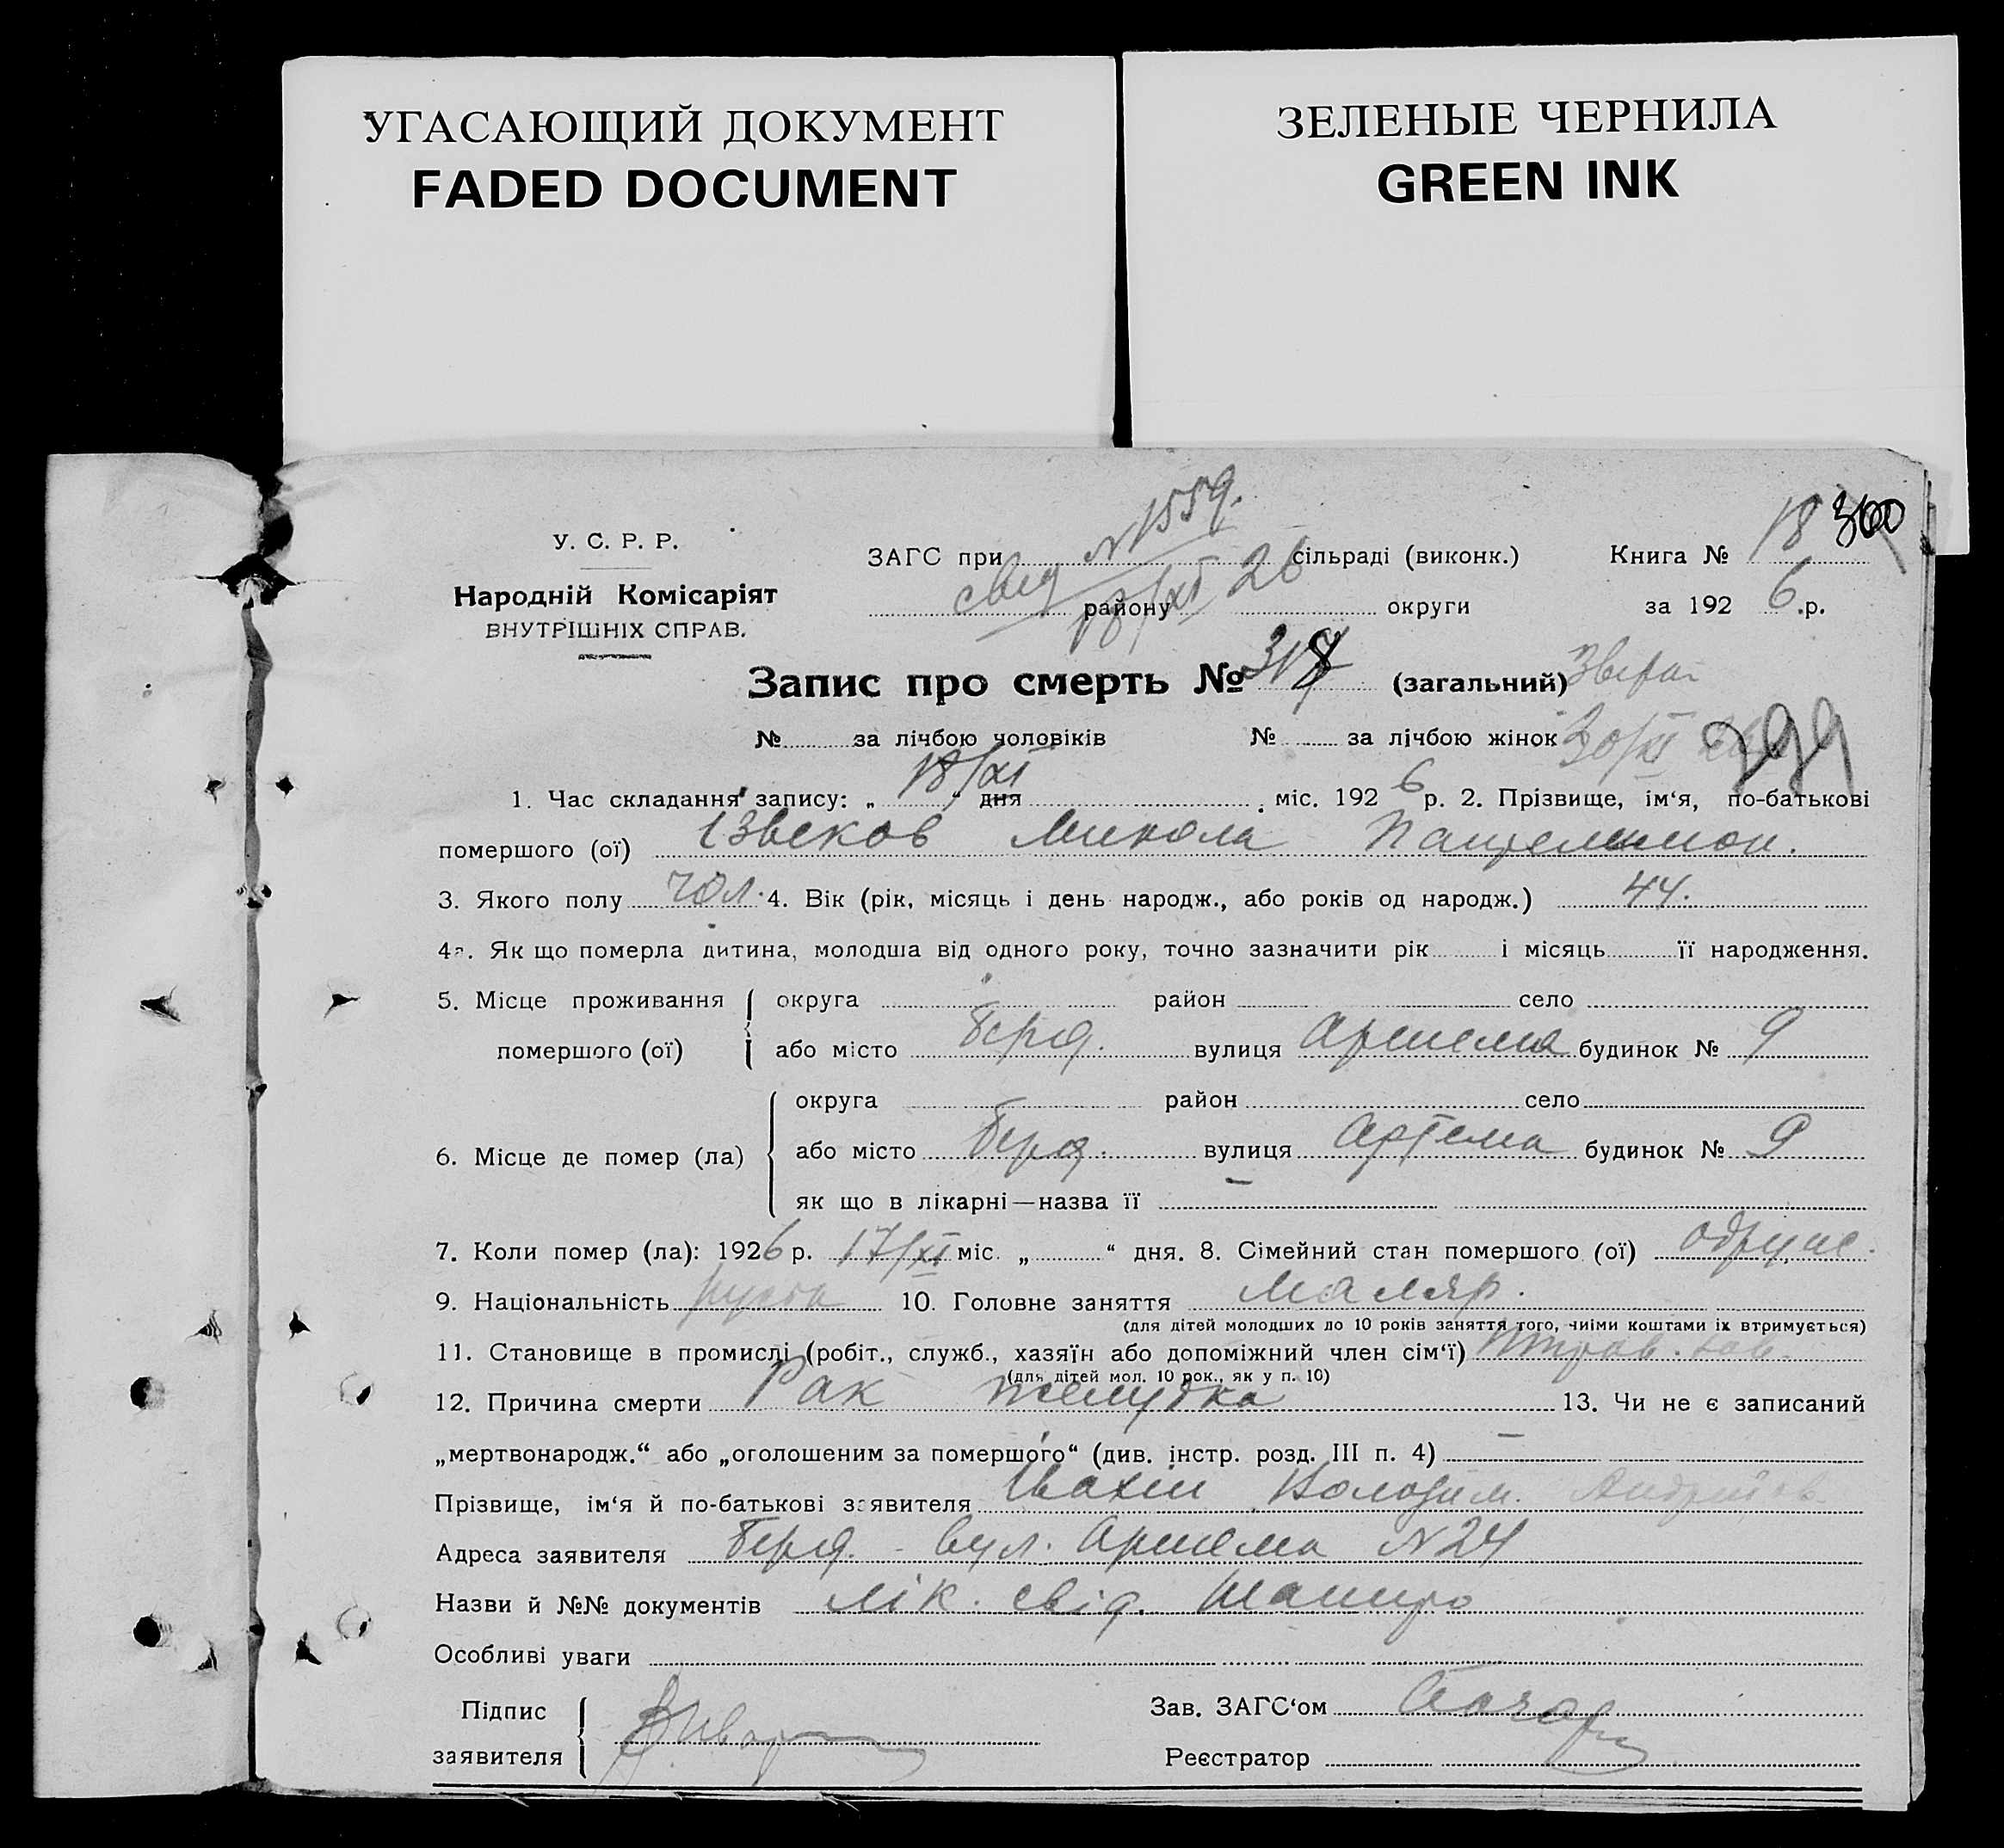 УГАСАЮЩИЙ ДОКУМЕНТ
FADED DOCUMENT
ЗЕЛЕНЫЕ ЧЕРНИЛА
GREEN INK
N 1559.
18 300
У. С. Р. Р.
Народній Комісаріят
ВНУТРІШНІХ СПРАВ.
ЗАГС при сільраді (виконк.) Книга №
18/XI 26
району округи за 192 6 .р.
Запис про смерть № 317 (загальний)
№ за лічбою чоловіків № за лічбою жінок 30/XI 299
1. Час складання запису: „ 18/XI “ дня міс. 192 6 р. 2. Прізвище, ім‘я, по-батькові
помершого (ої) Ізвеков Микола Пантелимон.
3. Якого полу чол. 4. Вік (рік, місяць і день народж., або років од народж.) 44.
4а. Як що померла дитина, молодша від одного року, точно зазначити рік і місяць її народження.
5. Місце проживання округа район село
помершого (ої) або місто Берд. вулиця Артема будинок № 9
округа район село
6. Місце де помер (ла) або місто Берд. вулиця Артема будинок № 9
як що в лікарні — назва її —
7. Коли помер (ла): 1926 р. 17/XI міс. „ “ дня. 8. Сімейний стан помершого (ої) одруже.
9. Національність руська 10. Головне заняття Маляр.
(для дітей молодших до 10 років заняття того, чиїми коштами їх втримується)
11. Становище в промислі (робіт., служб., хазяїн або допоміжний член сім‘ї)
(для дітей мол. 10 рок., як у п. 10)
12. Причина смерти Рак желудка 13. Чи не є записаний
„мертвонародж.“ або „оголошеним за помершого“ (див. інстр. розд. III п. 4) —
Прізвище, ім‘я й по-батькові заявителя Івахін Володим. Андрійов
Адреса заявителя Берд. - вул. Артема N 24
Назви й №№ документів лік. свід. Шапиро
Особливі уваги
Підпис
заявителя
Зав. ЗАГС‘ом
Реєстратор